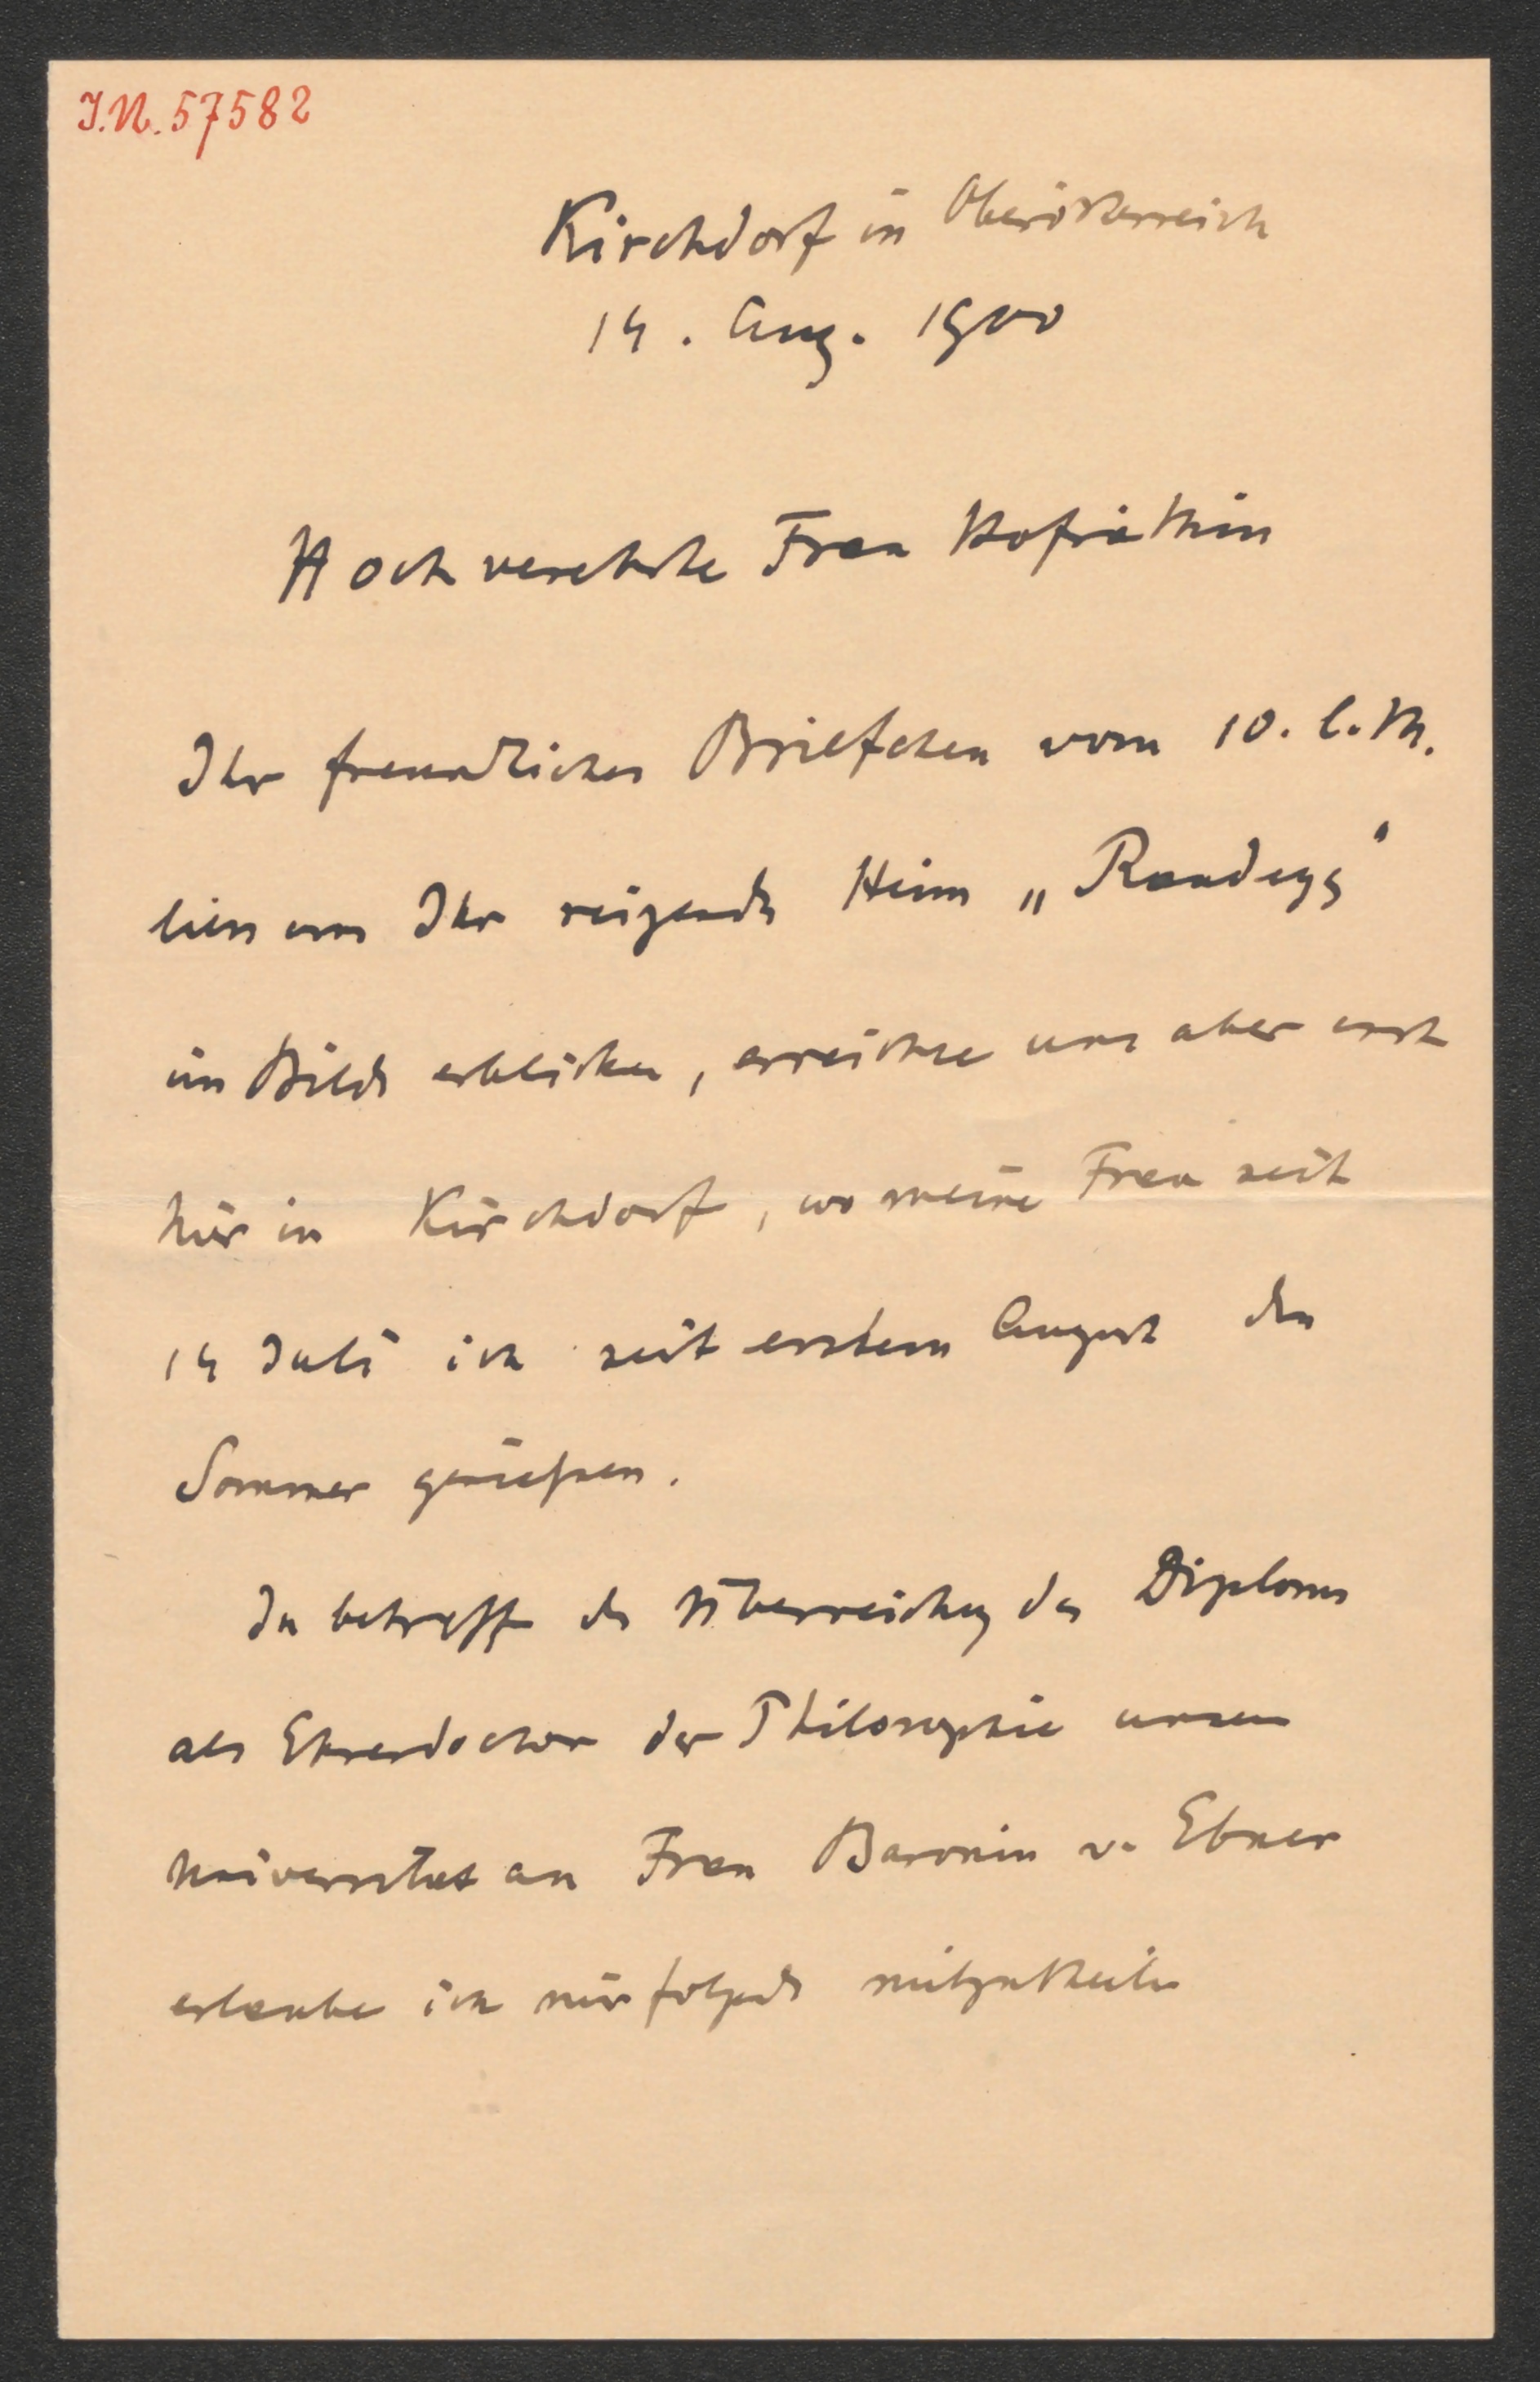 I.N. 57582
Kirchdorf in Oberösterreich
14. Aug. 1900
Hochverehrte Frau Hofräthin
Ihr freundliches Briefchen vom 10. l. M.
liess uns Ihr reizendes Heim „Randegg"
im Bilde erblicken, erreichte uns aber erst
hier in Kirchdorf, wo meine Frau seit
14 Juli ich seit erstem August den
Sommer genießen.
In betreff der Überreichung des Diploms
als Ehrendoctor der Philosophie unserer
Universität an Frau Baronin v. Ebner
erlaube ich mir folgendes mitzutheilen